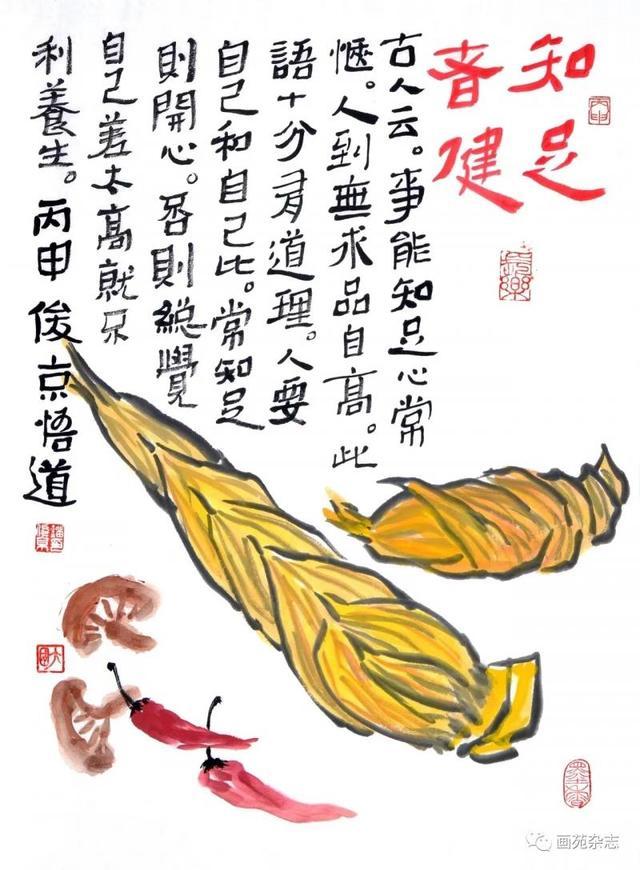 知足
者健
古人云。事能知足心常
愜。人到無求品自高。此
語十分有道理。人要
自己和自己比。常知足
則開心。否則總覺
自己差太高就不
利養生。丙申俊京悟道
丙申
画苑杂志